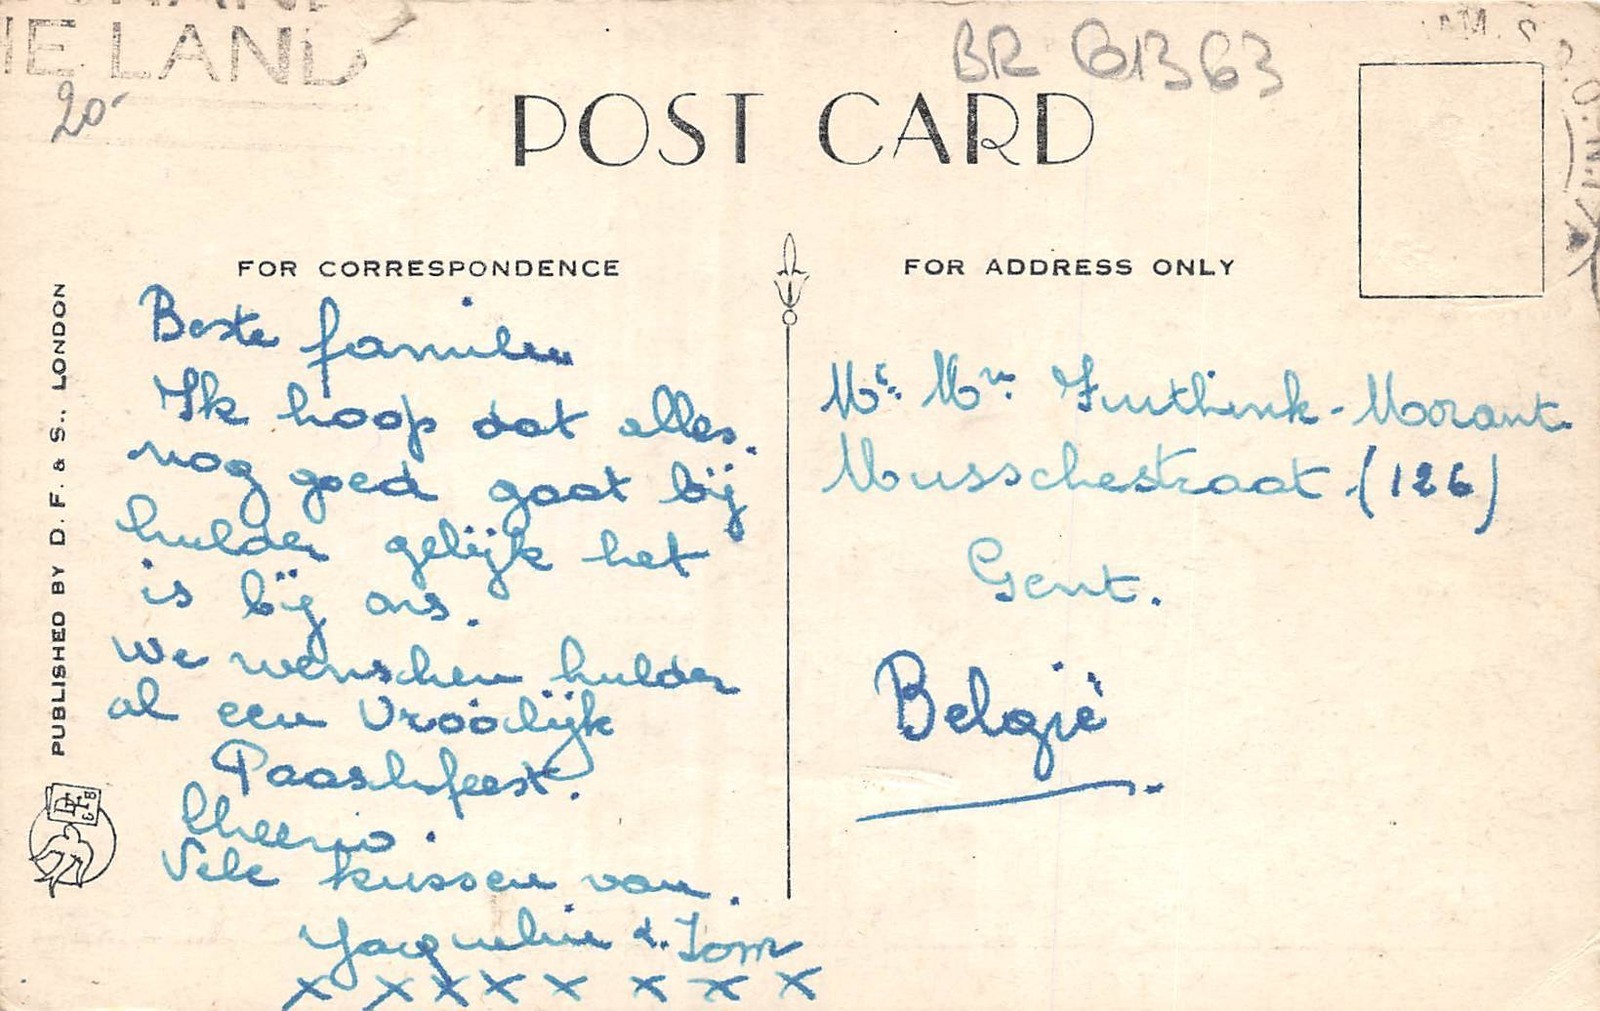 HE LAND
20-
BR 61363
POST CARD
FOR CORRESPONDENCE
FOR ADDRESS ONLY
PUBLISHED BY D. F. & S., LONDON
Beste familie
Ik hoop dat alles.
nog goed gaat bij
hulder gelijk het
is bij ons.
We wenschen hulder
al een Vroolijk
Paaschfeest.
Cheerio.
Vele kussen van.
Jacqueline & Tom
x x x x x x x x
Mr. Mm.
Musschestraat (126)
Gent.
België